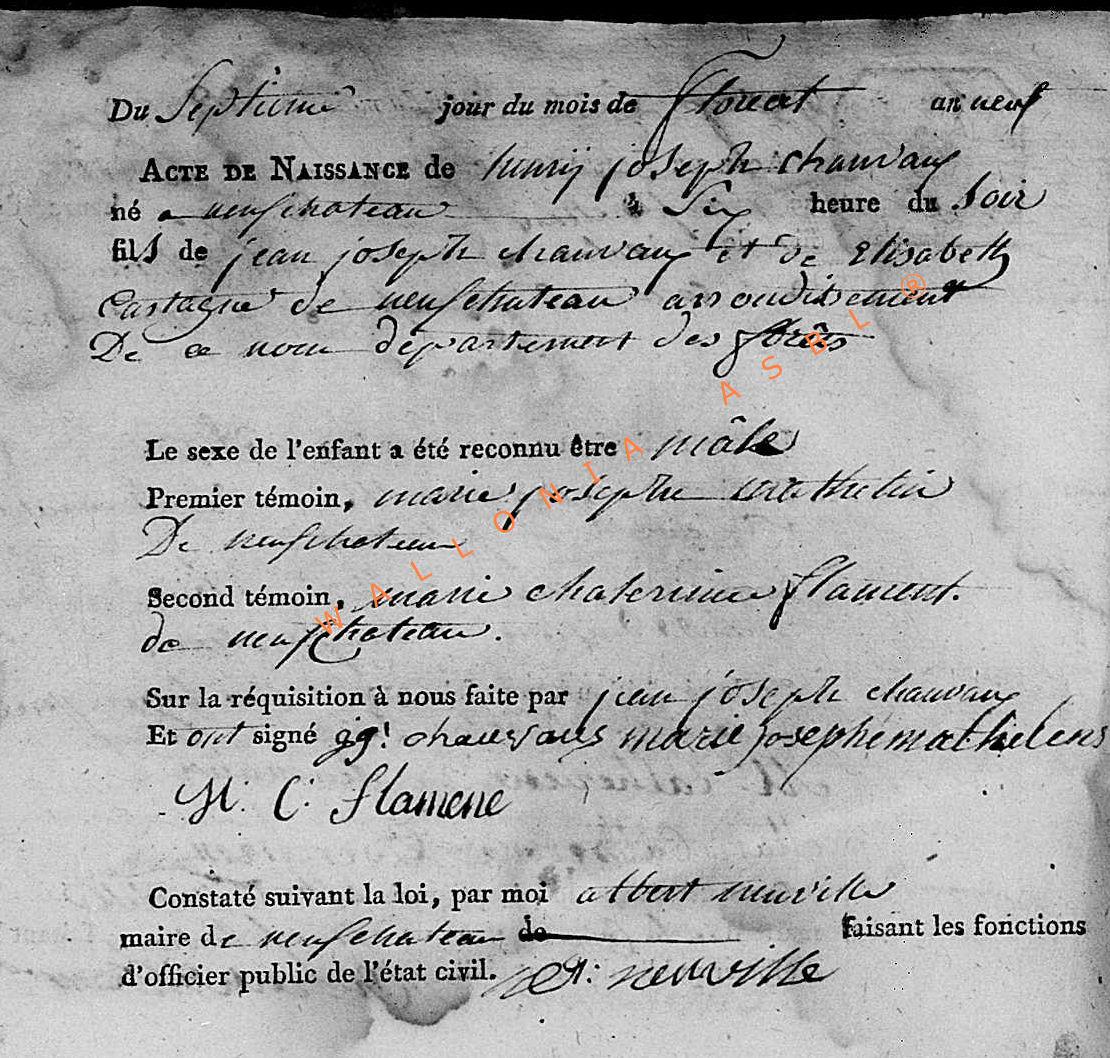 Du Septieme jour du mois de floreal an neuf
ACTE DE NAISSANCE de henrij joseph chauvaux
né a neufchateau à Six heure du Soir
fils de jean joseph chauvaux et de Elisabeth
Castagne de neufchateau arrondissement
De ce nom departement des forêts
Le sexe de l'enfant a été reconnu être mâle
Premier témoin, marie josephe mathelin
De neufchateau
Second témoin, marie chaterinne flament.
de neufchateau.
Sur la réquisition à nous faite par jean joseph chauvaux
Et ont signé chauvaux marie josephe mathelens
M: C: flamene
Constaté suivant la loi, par moi albert neuville
maire de neufchateau de faisant les fonctions
d'officier public de l'état civil. neuville
WALLONIA ASBL ®